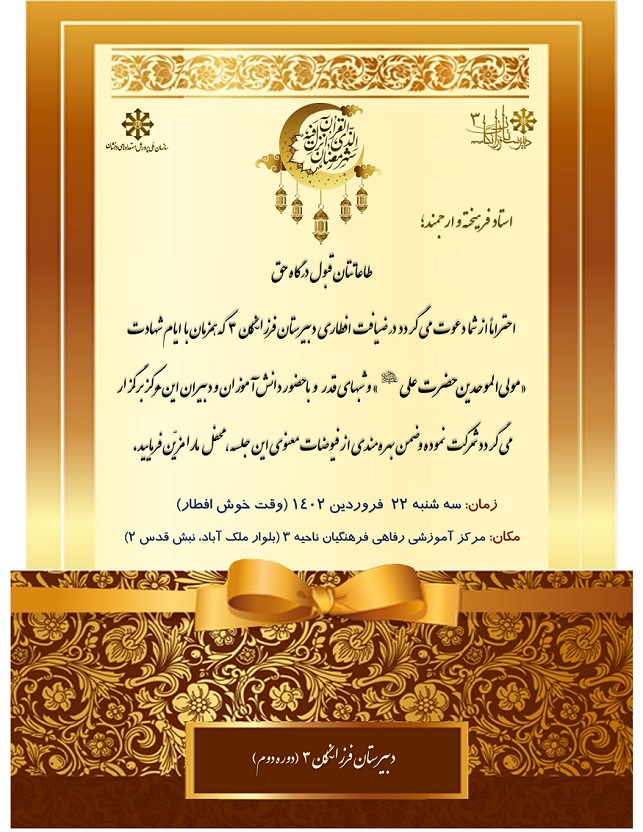 شهر رمضان الذی انزل فیه القرآن
دبیرستان فرزانگان ۳
سازمان ملی پرورش استعدادهای درخشان
استاد فرهیخته و ارجمند؛
طاعاتتان قبول درگاه حق
احتراماً از شما دعوت می گردد در ضیافت افطاری دبیرستان فرزانگان ۳ که همزمان با ایام شهادت
«مولی الموحدین حضرت علی» و شبهای قدر و با حضور دانش آموزان و دبیران این مرکز برگزار
می گردد شرکت نموده و ضمن بهره مندی از فیوضات معنوی این جلسه، محفل ما را مزیّن فرمایید.
زمان: سه شنبه ۲۲ فروردین ۱۴۰۲ (وقت خوش افطار)
مکان: مرکز آموزشی رفاهی فرهنگیان ناحیه ۳ (بلوار ملک آباد، نبش قدس ۲)
دبیرستان فرزانگان ۳ (دوره دوم)